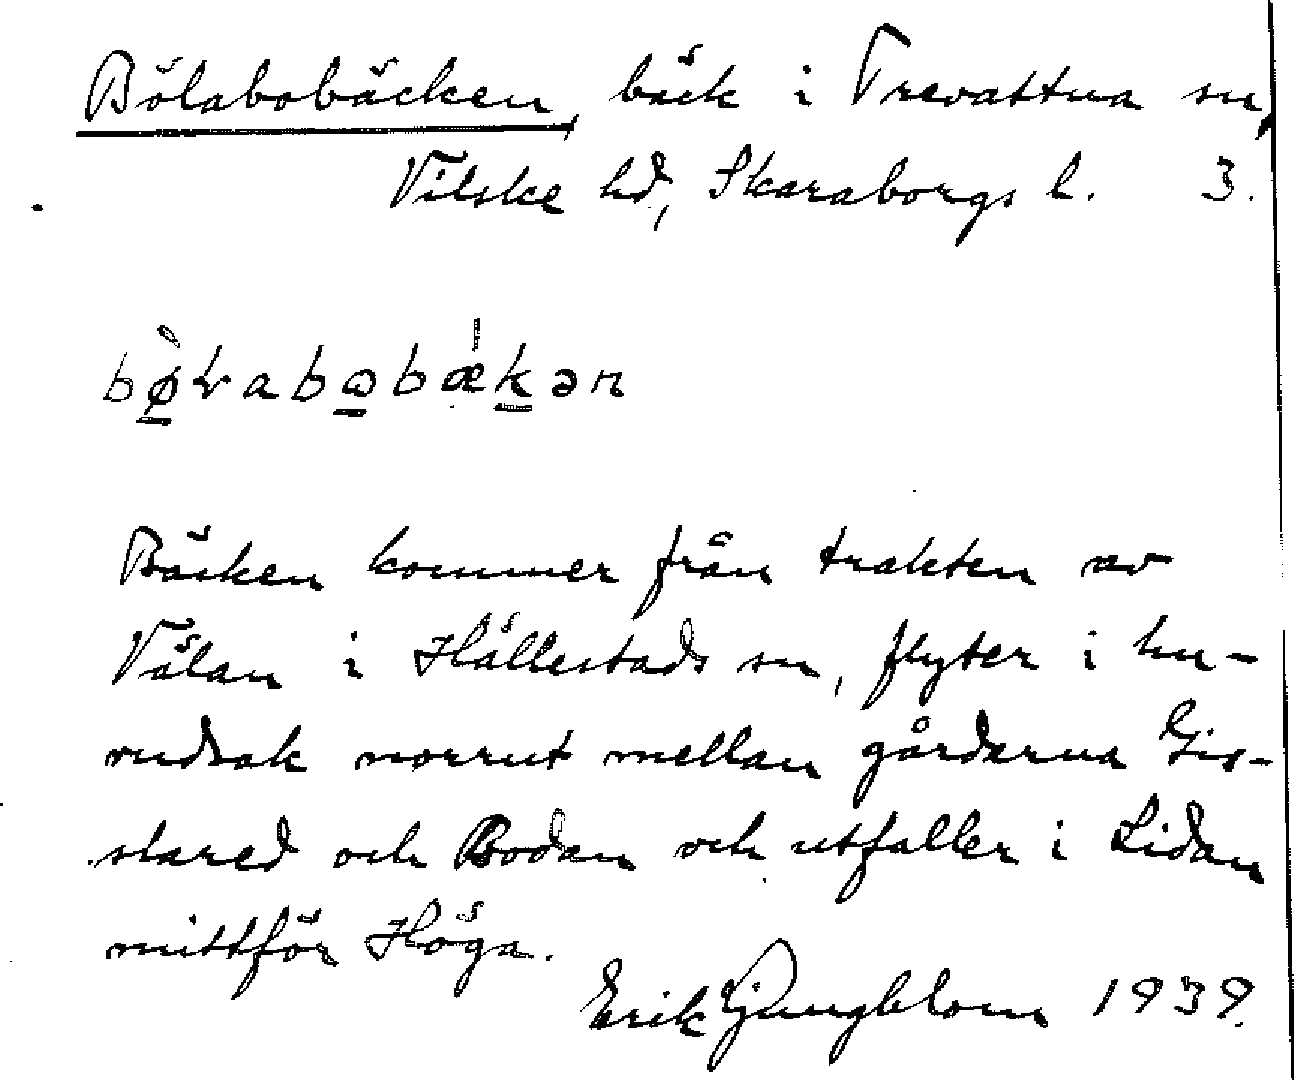 Bölabobäcken, bäck i Trevattna sn,
Vilske hd, Skaraborgs l. 3.
bø̀ɽabɷbǽkən
Bäcken kommer från trakten av
Vålan i Hällestads sn, flyter i hu-
vudsak norrut mellan gårdarna Gis-
slared och Bodan och utfaller i Lidan
mittför Höga.
Erik Ljungblom 1939.